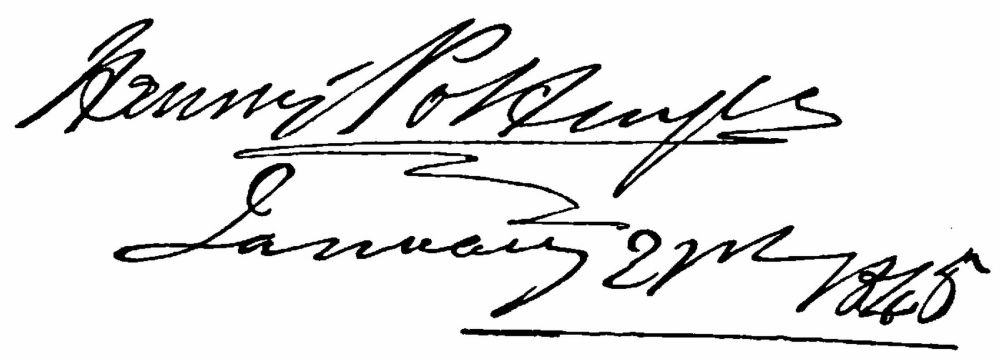 Henry Pottinger
January 1845